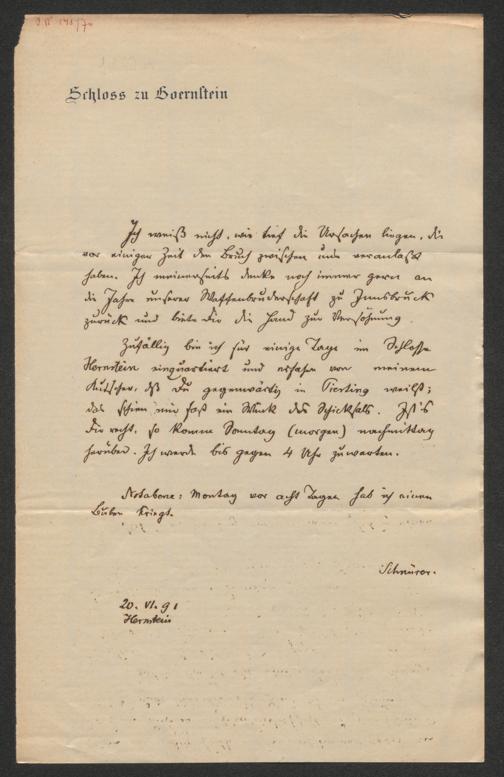 Schloss zu Hoernstein
Ich weiß nicht, wie tief die Ursachen liegen, die
vor einiger Zeit den Bruch zwischen uns veranlaßt
haben. Ich meinerseits denke noch immer gern an
die Jahre unserer Waffenbruderschaft zu Innsbruck
zurück und biete Dir die Hand zur Versöhnung.
Zufällig bin ich für einige Tage im Schlosse
Hernstein einquartiert und erfahre von meinem
Kutscher, dß Du gegenwärtig in Piesting weilst;
das schien mir fast ein Wink des Schicksals. Ist's
Dir recht, so komme Sonntag (morgen) nachmittag
herüber. Ich werde bis gegen 4 Uhr zuwarten.
Notabene: Montag vor acht Tagen hab ich einen
Buben kriegt.
Schnürer.
20. VI. 91
Hernstein